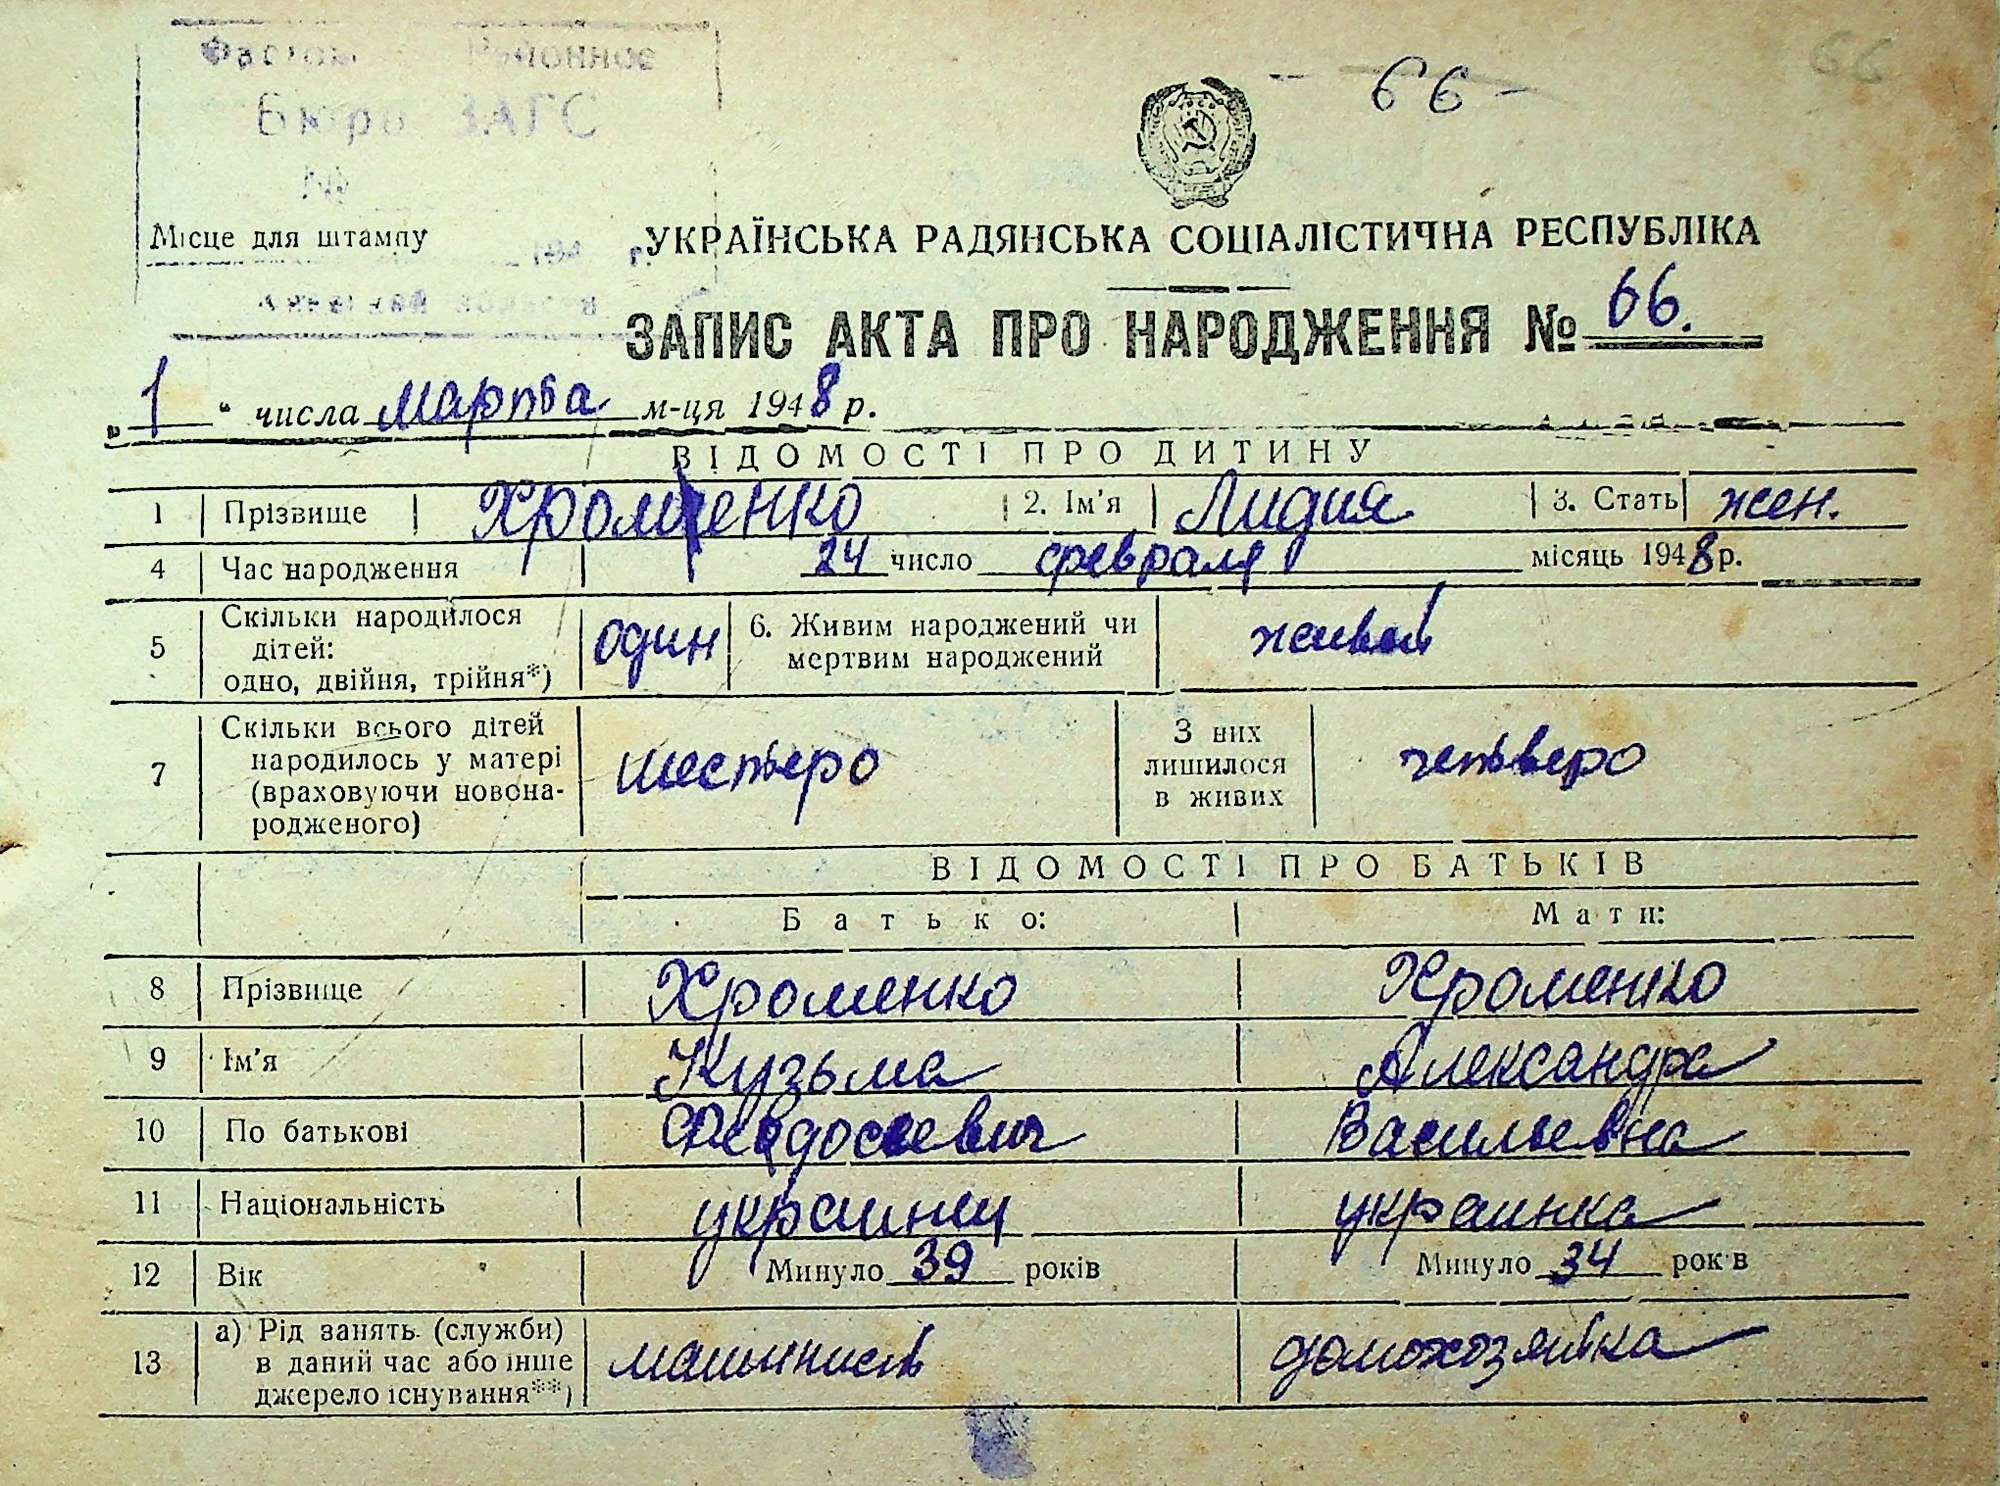 Районное
66
66
Бюро ЗАГС
№
Місце для штампу
УКРАЇНСЬКА РАДЯНСЬКА СОЦІАЛІСТИЧНА РЕСПУБЛІКА
ЗАПИС АКТА ПРО НАРОДЖЕННЯ № 66.
„ 1 “ числа марта м-ця 1948 р.
ВІДОМОСТІ ПРО ДИТИНУ
1 Прізвище Хроменко 2. Ім'я Лидия 3. Стать жен.
4 Час народження 24 число февраля місяць 1948 р.
5 Скільки народилося дітей: одно, двійня, трійня*) один 6. Живим народжений чи мертвим народжений живой
7 Скільки всього дітей народилось у матері (враховуючи новонародженого) шестьеро З них лишилося в живих четьверо
ВІДОМОСТІ ПРО БАТЬКІВ
Батько: Мати:
8 Прізвище Хроменко Хроменко
9 Ім'я Кузьма Александра
10 По батькові Феодосеевич Васильевна
11 Національність украинец украинка
12 Вік Минуло 39 років Минуло 34 років
13 а) Рід занять (служби) в даний час або інше джерело існування**) машинист домохозяйка